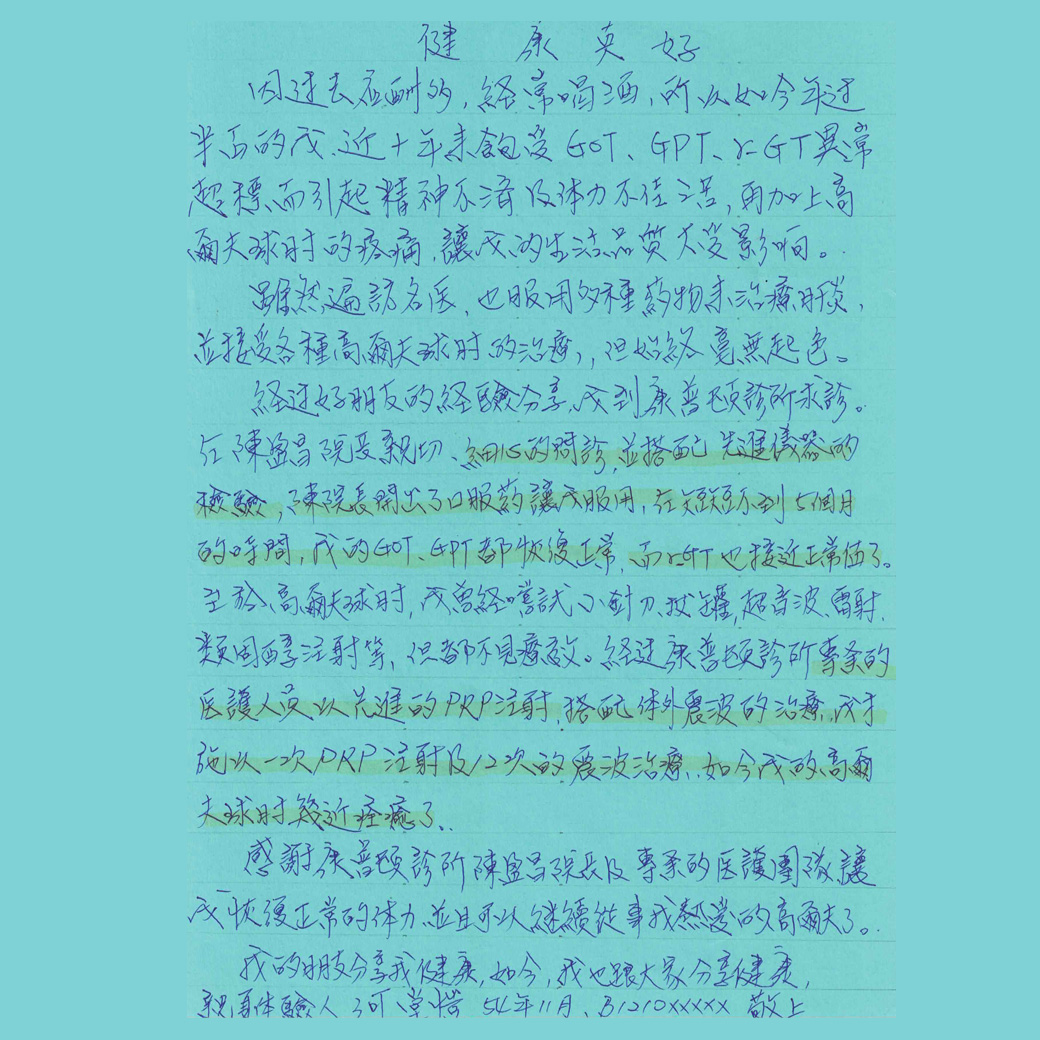 健康真好
因过去应酬多,経常喝酒,所以如今年过
半百的我,近十年来飽受GOT、GPT、r-GT異常
超標而引起精神不濟及体力不佳之苦,再加上高
爾夫球肘的疼痛,讓我的生活品質大受影响。
雖然遍訪名医,也服用多種药物来治療肝炎,
並接受各種高爾夫球肘的治療,但始終毫無起色。
経过好朋友的経驗分享,我到康普頓診所求診。
在陳盈昌院長親切、細心的問診,並搭配先進儀器的
檢驗,陳院長開出了口服药讓我服用,在短短不到5個月
的時間,我的GOT、GPT都恢復正常,而r-GT也接近正常值了。
至於高爾夫球肘,我曾経嚐試小針刀、拔罐,超音波、雷射、
類固醇注射等,但都不見療效。経过康普頓診所專業的
医護人員以先進的PRP注射,搭配体外震波的治療,我才
施以一次PRP注射及12次的震波治療,如今我的高爾
夫球肘幾近痊癒了。
感謝康普頓診所陳盈昌院長及專業的医護團隊讓
我恢復正常的体力,並且可以継續從事我熱愛的高爾夫了。
我的朋友分享我健康,如今,我也跟大家分享健康,
親身体驗人 54年11月、B1210xxxxx 敬上